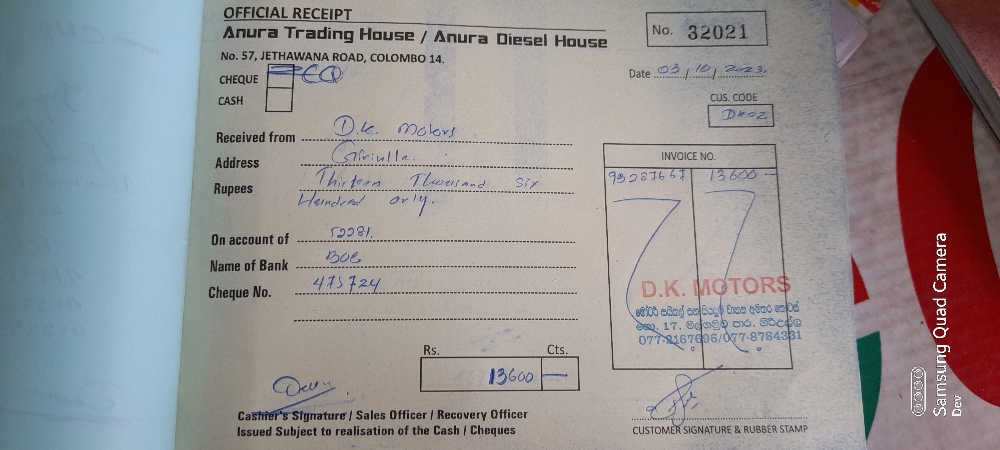 OFFICIAL RECEIPT
Anura Trading House / Anura Diesel House
No. 57, JETHAWANA ROAD, COLOMBO 14.
No. 32021
Date 03/10/2023.
CHEQUE
CASH
CUS. CODE
Received from D.K. Motors
Address Giriulla.
Rupees Thirteen Thousand Six
Hundred only.
INVOICE NO.
93287667 13600 —
On account of 52281.
Name of Bank BOC
Cheque No. 475724
D.K. MOTORS
077-2167696/077-8784331
Rs. Cts.
13600 —
Cashier's Signature / Sales Officer / Recovery Officer
Issued Subject to realisation of the Cash / Cheques
CUSTOMER SIGNATURE & RUBBER STAMP
Samsung Quad Camera
Dev